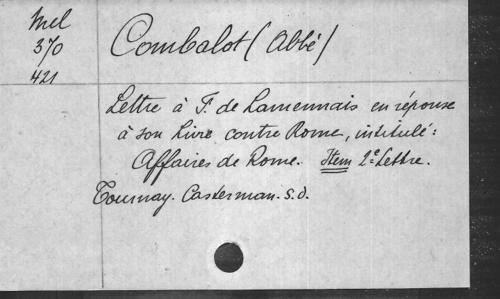 Mel
370
421
Combalot (Abbé)
Lettre à F. de Lamennais en réponse
à son Livre contre Rome, intitulé:
Affaires de Rome. Item 2e Lettre.
Tournay. Casterman. s.d.